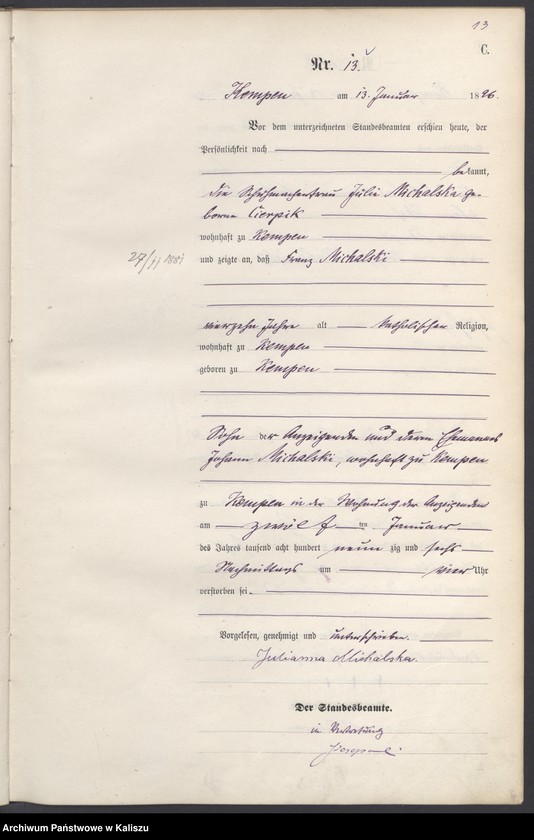 13
C.
Nr. 13.
Kempen am 13. Januar 1896.
Vor dem unterzeichneten Standesbeamten erschien heute, der
Persönlichkeit nach
bekannt,
die Schuhmacherfrau Julie Michalska ge-
borne Cierpik
wohnhaft zu Kempen
27/11 1881
und zeigte an, daß Franz Michalski
vierzehn Jahre alt katholischer Religion,
wohnhaft zu Kempen
geboren zu Kempen
Sohn der Anzeigenden und deren Ehemannes
Johann Michalski, wohnhaft zu Kempen
zu Kempen in der Wohnung der Anzeigenden
am zwölften Januar
des Jahres tausend acht hundert neunzig und sechs
Nachmittags um vier Uhr
verstorben sei.
Vorgelesen, genehmigt und unterschrieben.
Julianna Michalska.
Der Standesbeamte.
in Vertretung
Archiwum Państwowe w Kaliszu